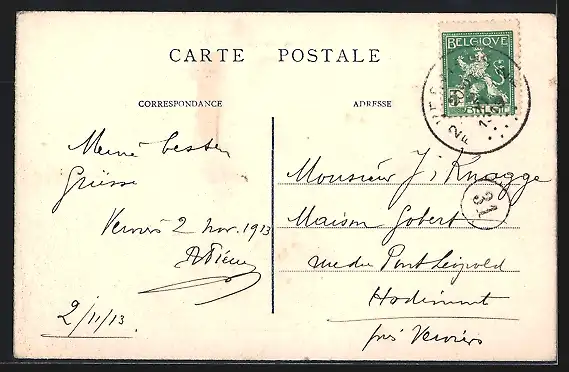 CARTE POSTALE
CORRESPONDANCE
ADRESSE
BELGIQUE
5
BELGIË
Meine besten
Grüsse
Verviers 2 nov. 1913
2/11/13.
Monsieur J. Knagge
Maison Gobert
rue du Pont Léopold
Hodimont
près Verviers
31